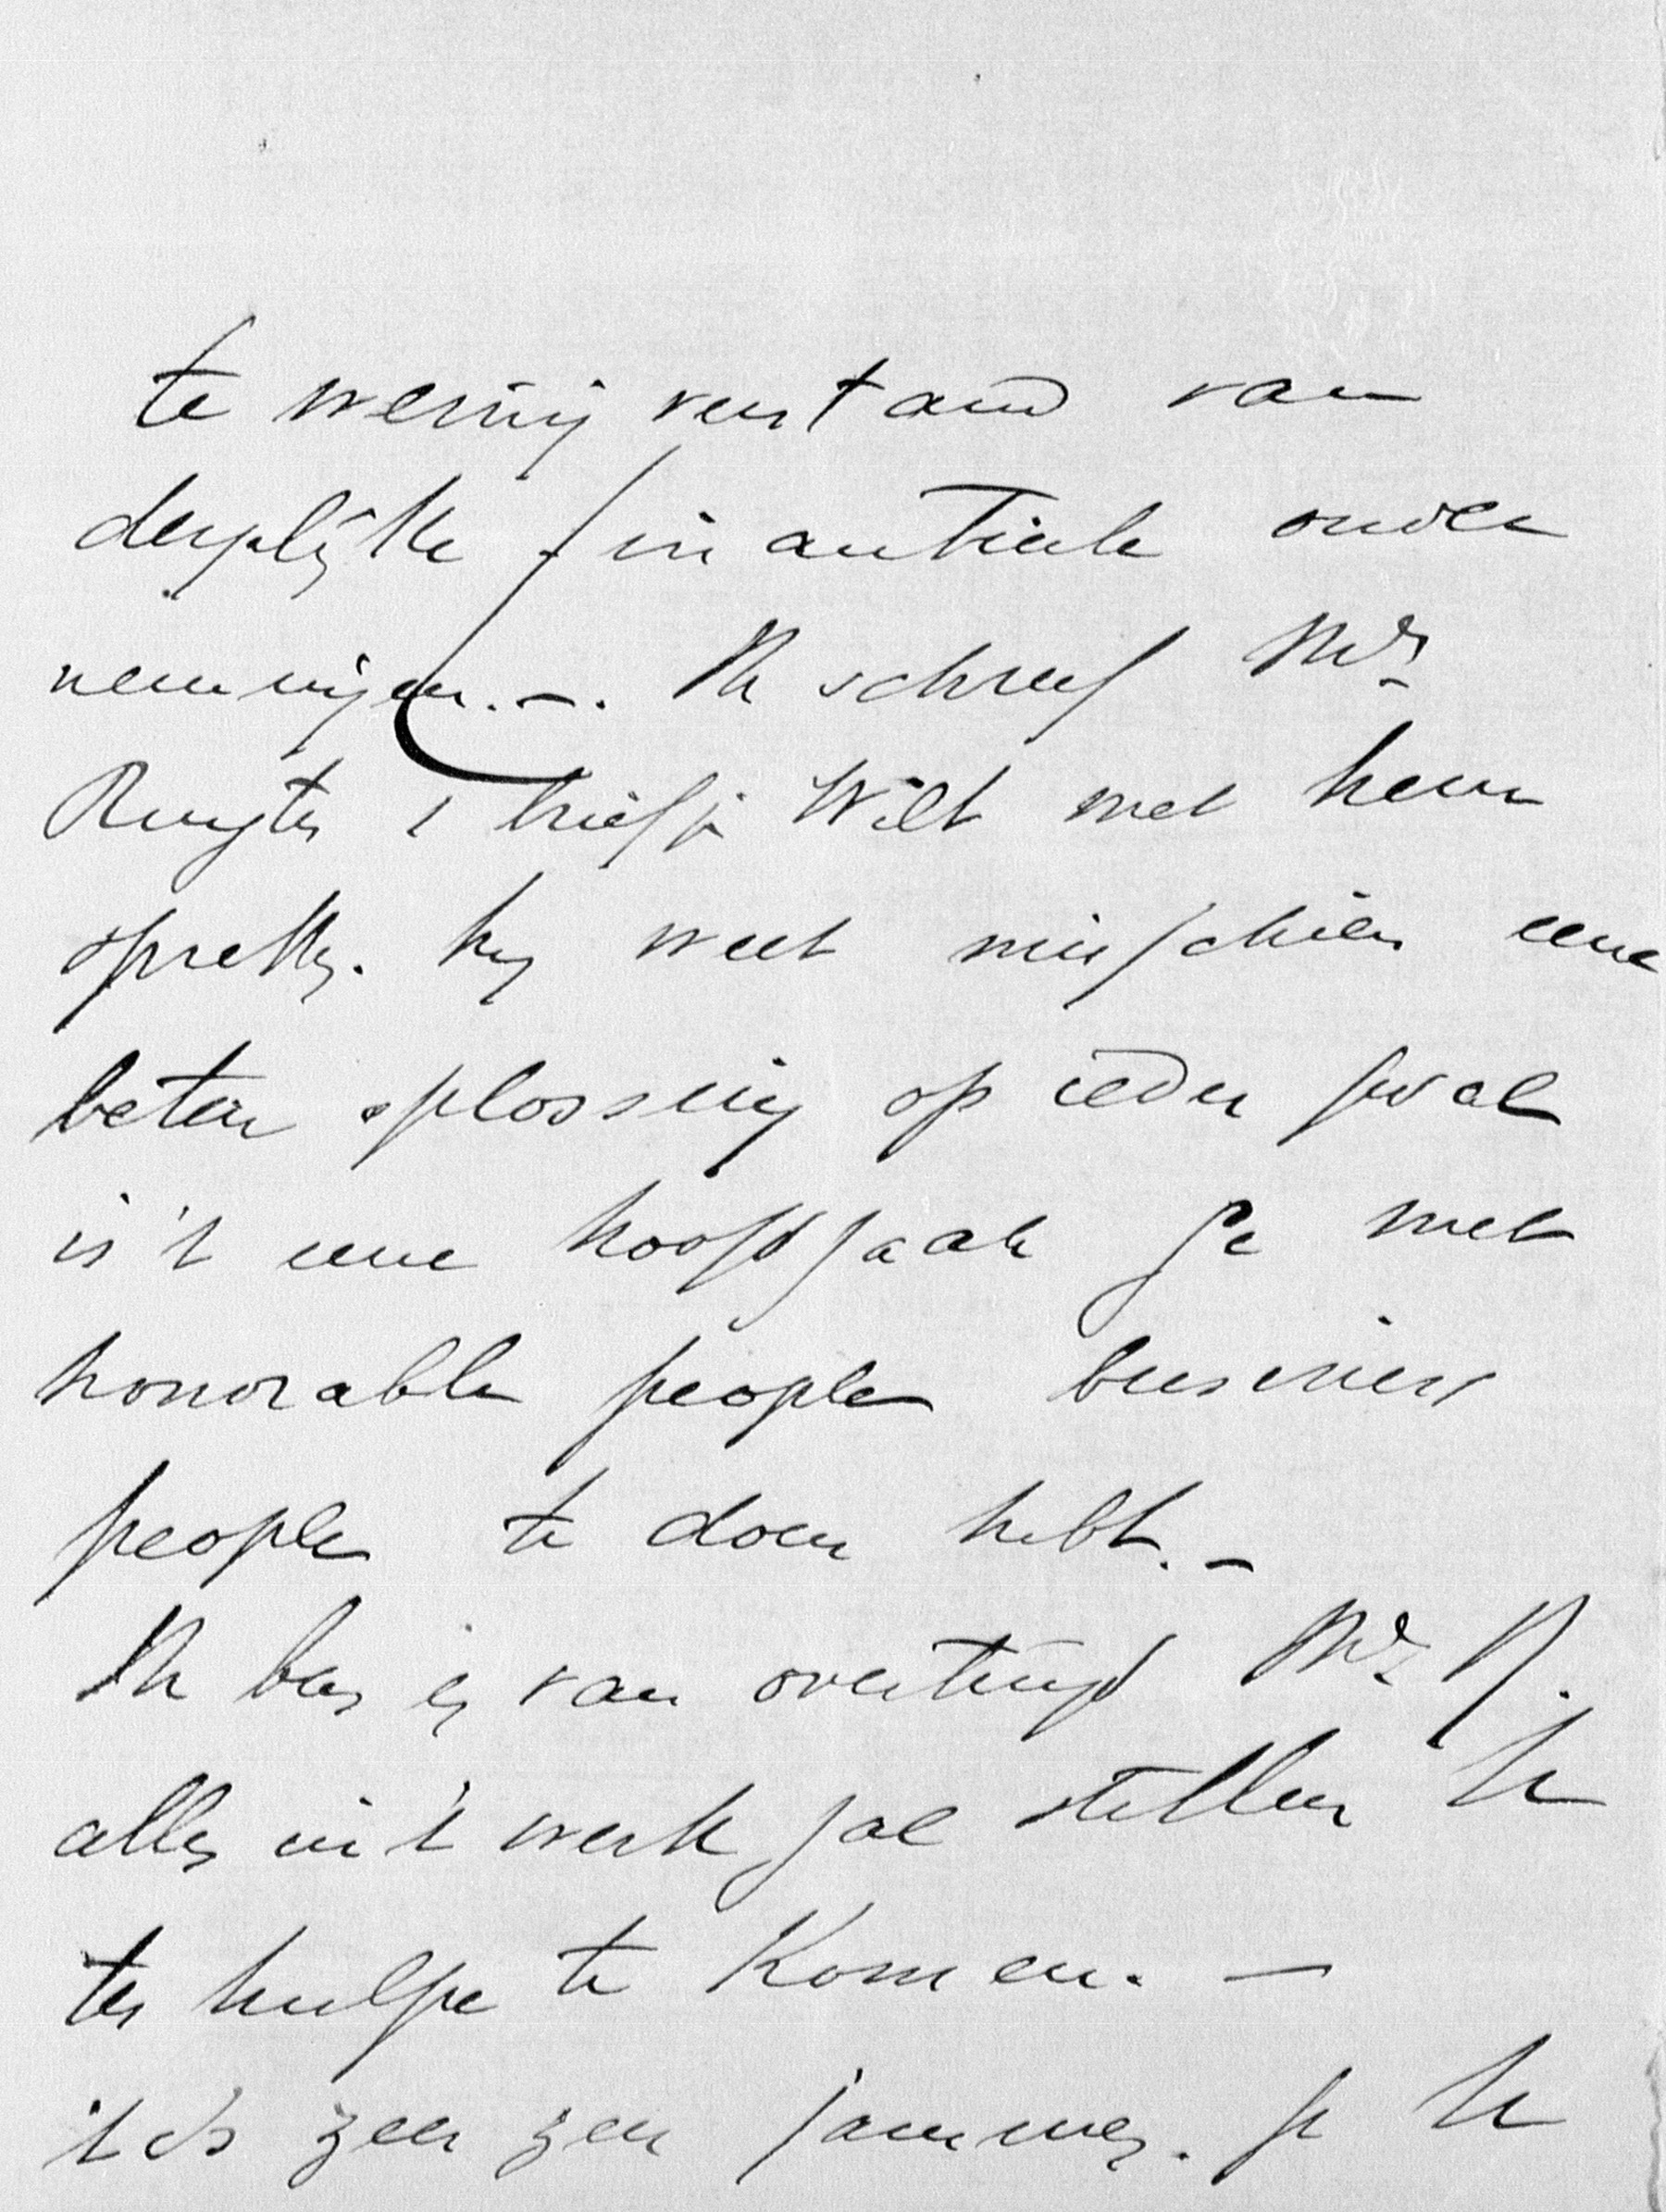 te weinig verstand van
derglijke finantieele onder
nemingen. —. Ik schreef Mr
Ruyter 1 briefje Wilt met hem
spreken. hij weet misschien eene
betere oplossing op ieder geval
is 't eene hoofdzaak ge met
honorable people business
people te doen hebt. —
Ik ben er van overtuigd Mr R.
alles in 't werk zal stellen U
ter hulpe te komen. —
't is zeer zeer jammer. U